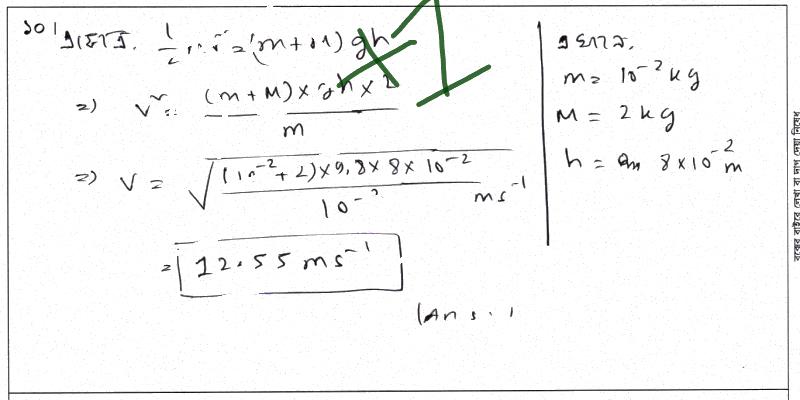 ১০। এক্ষেত্রে, ½mv² = (m+M) gh
⇒ v² = (m+M)×gh×2 / m
⇒ v = √((10⁻²+2)×9.8×8×10⁻² / 10⁻²) ms⁻¹
= 12.55 ms⁻¹
(Ans.)
এখানে,
m = 10⁻² kg
M = 2 kg
h = 8×10⁻² m
বক্সের বাইরে লেখা বা দাগ দেয়া নিষেধ